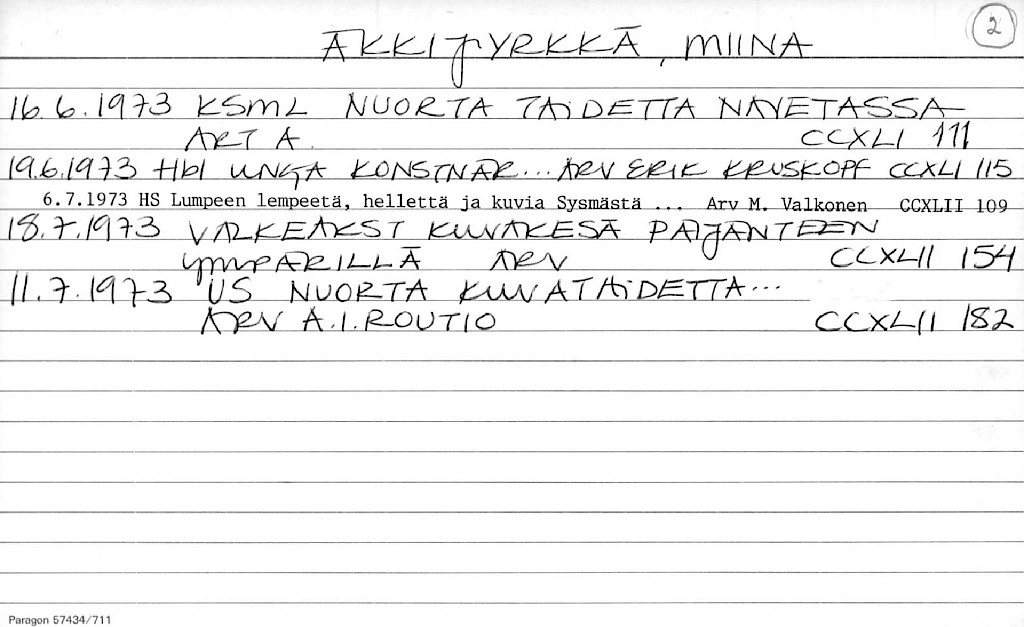 2
ÄKKIJYRKKÄ, MIINA
16.6.1973 KSML NUORTA TAIDETTA NAVETASSA
ART A. CCXLI 111
19.6.1973 Hbl UNGA KONSTNÄR... ARV ERIK KRUSKOPF CCXLI 115
6.7.1973 HS Lumpeen lempeetä, hellettä ja kuvia Sysmästä ... Arv M. Valkonen CCXLII 109
18.7.1973 VALKEAKST KUVAKESÄ PÄIJÄNTEEN
YMPÄRILLÄ ARV CCXLII 154
11.7.1973 US NUORTA KUVATAIDETTA...
ARV A.I. ROUTIO CCXLII 182
Paragon 57434/711